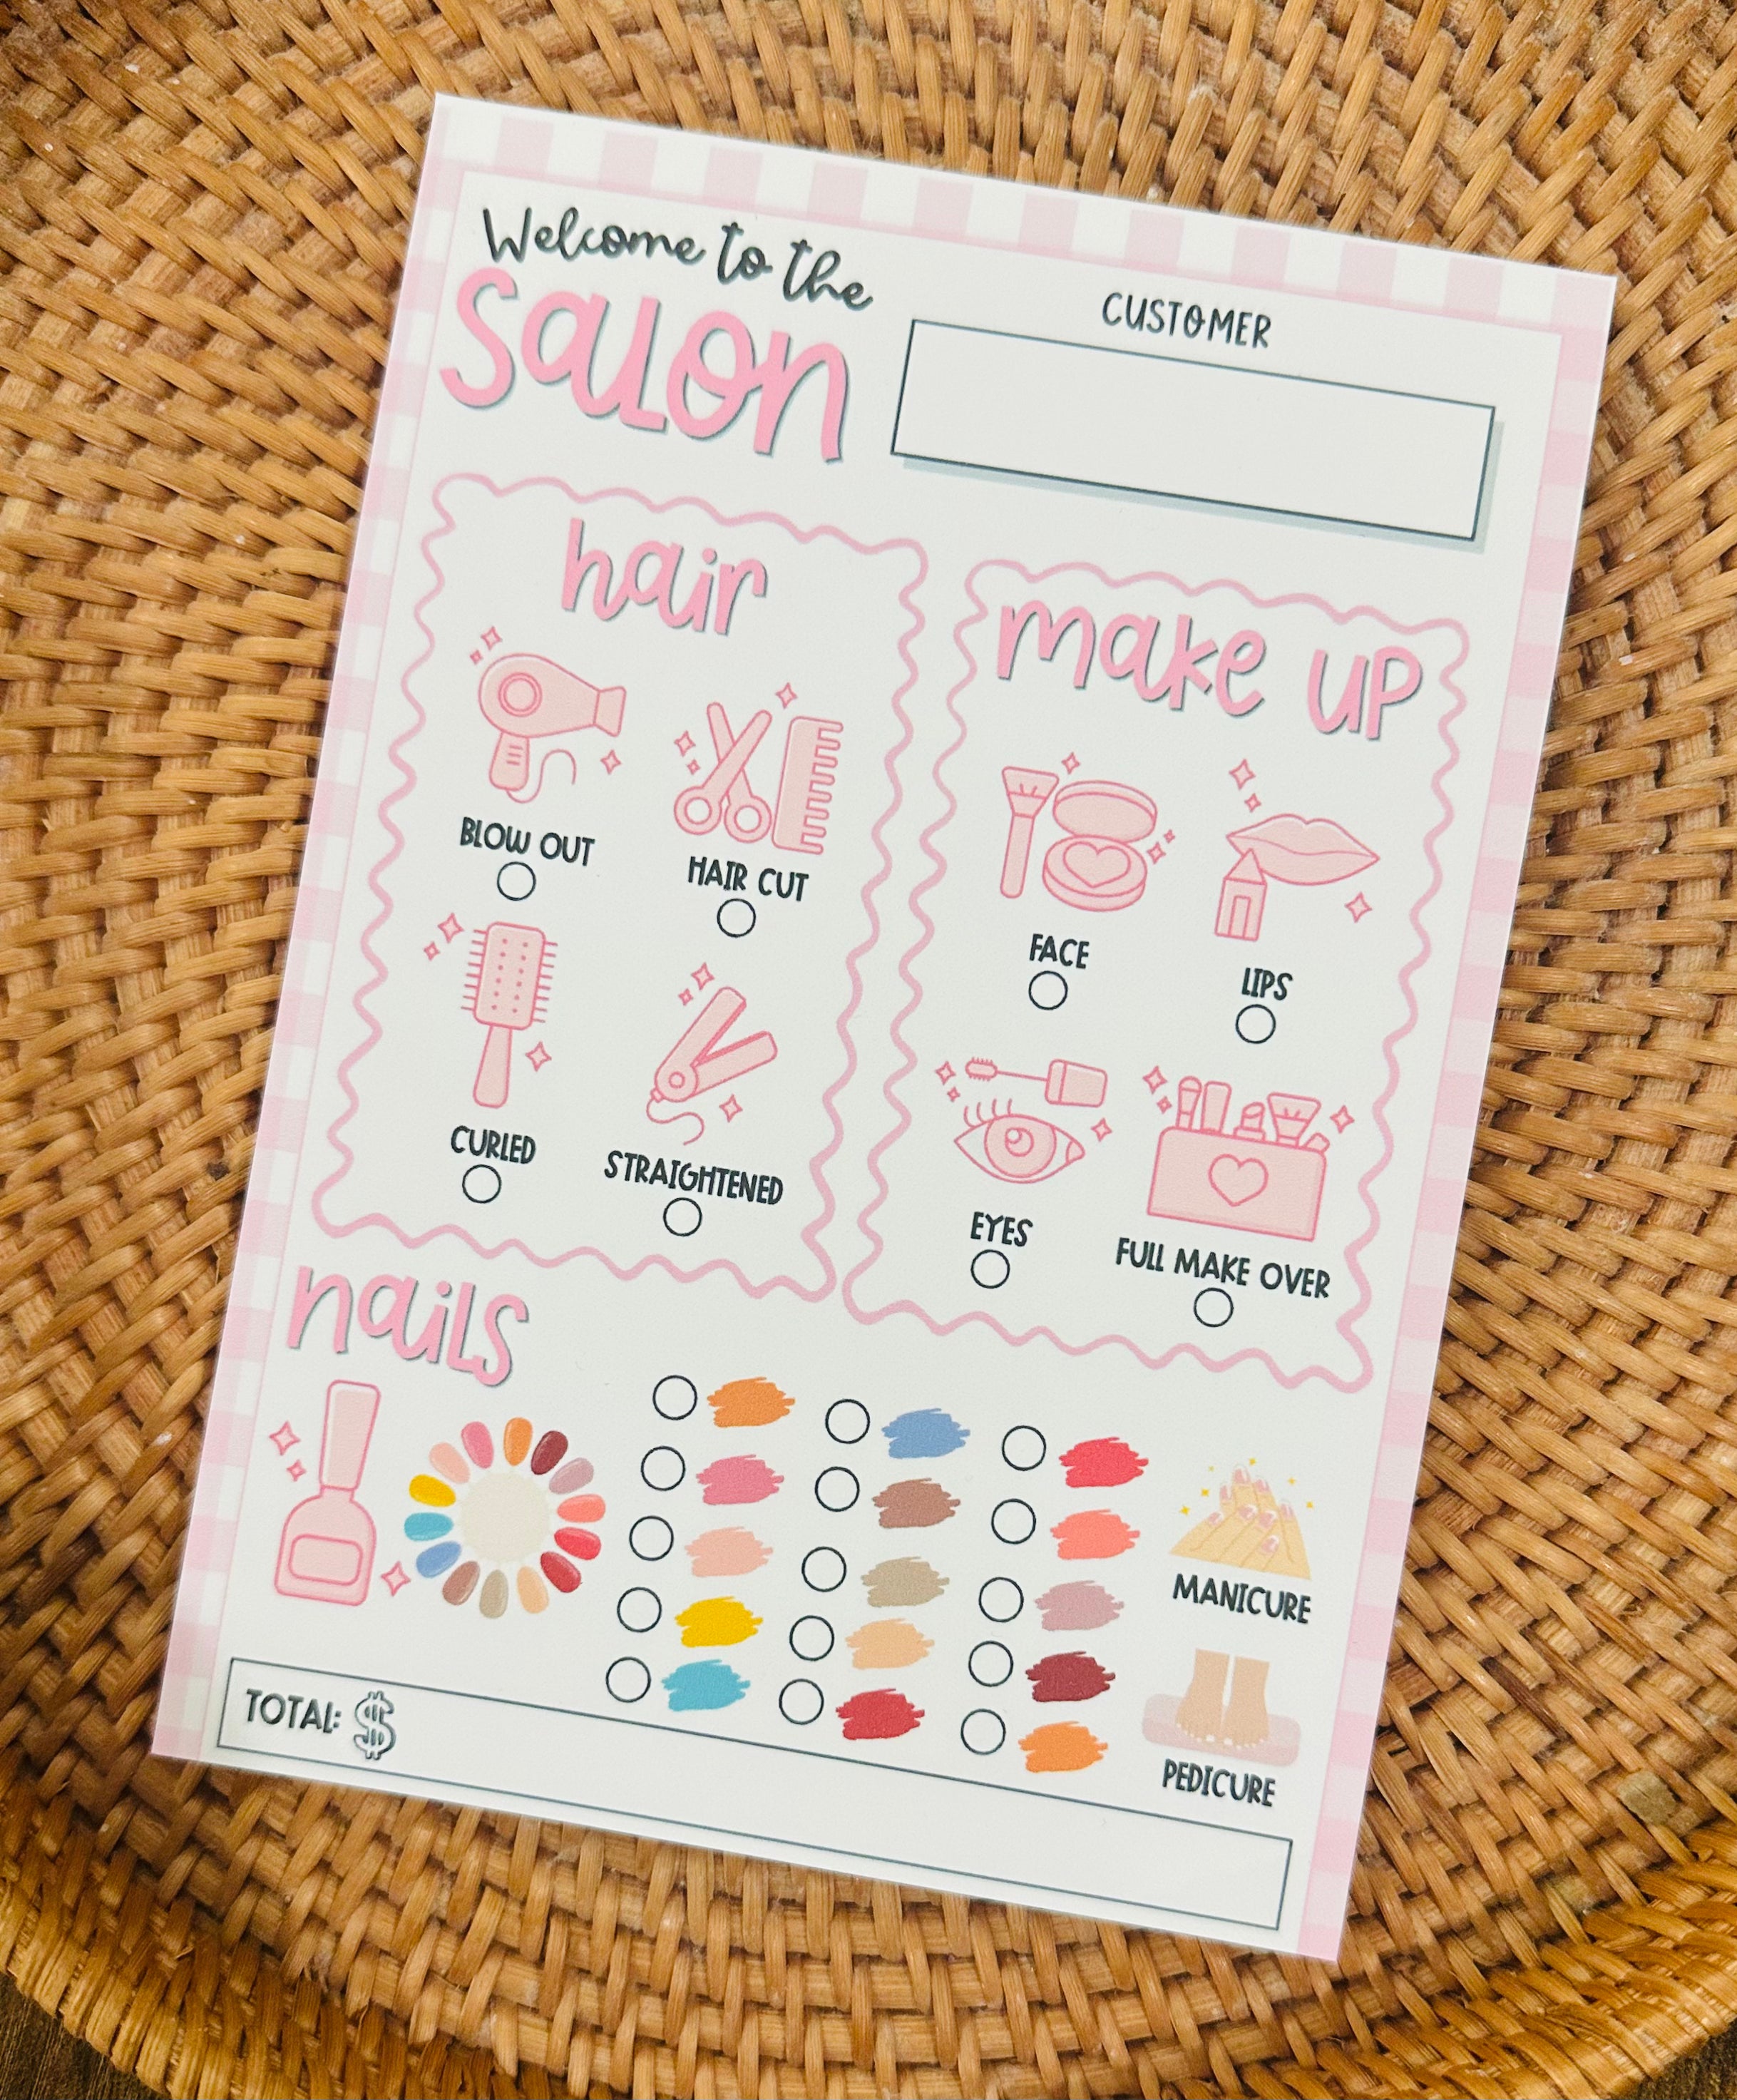 Welcome to the
salon
CUSTOMER
hair
BLOW OUT
HAIR CUT
CURLED
STRAIGHTENED
make up
FACE
LIPS
EYES
FULL MAKE OVER
nails
MANICURE
PEDICURE
TOTAL: $